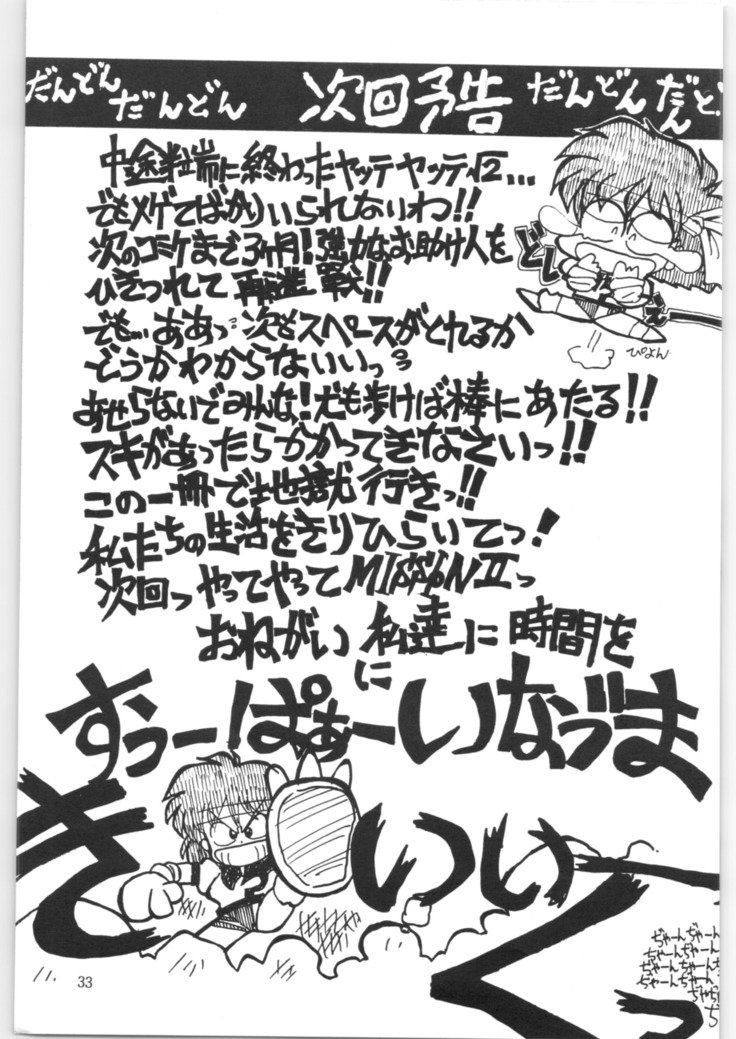 だんどん だんどん 次回予告 だんどん だんど
中途半端に終わったヤッテヤッテ√2...
でもメゲてばかりいられないわっ!!
次のコミケまで3ヶ月!強力なお助け人を
ひきつれて再進撃!!
でも…ああっ…次もスペースがとれるか
どうかわからないいっっっ
あせらないでみんな!犬も歩けば棒にあたる!!
スキがあったらかかってきなさいっ!!
この一冊で地獄行きっ!!
私たちの生活をきりひらいてっ!
次回っやってやってMISSION Ⅱっ
おねがい私達に時間を
に
すっーぱぁーいなづま
きいいくっ
ぴよん
ぢゃーん ぢゃーん
ぢゃーん ぢゃーん
ぢゃーん ぢゃーん
ぢゃーん ぢゃーん
33